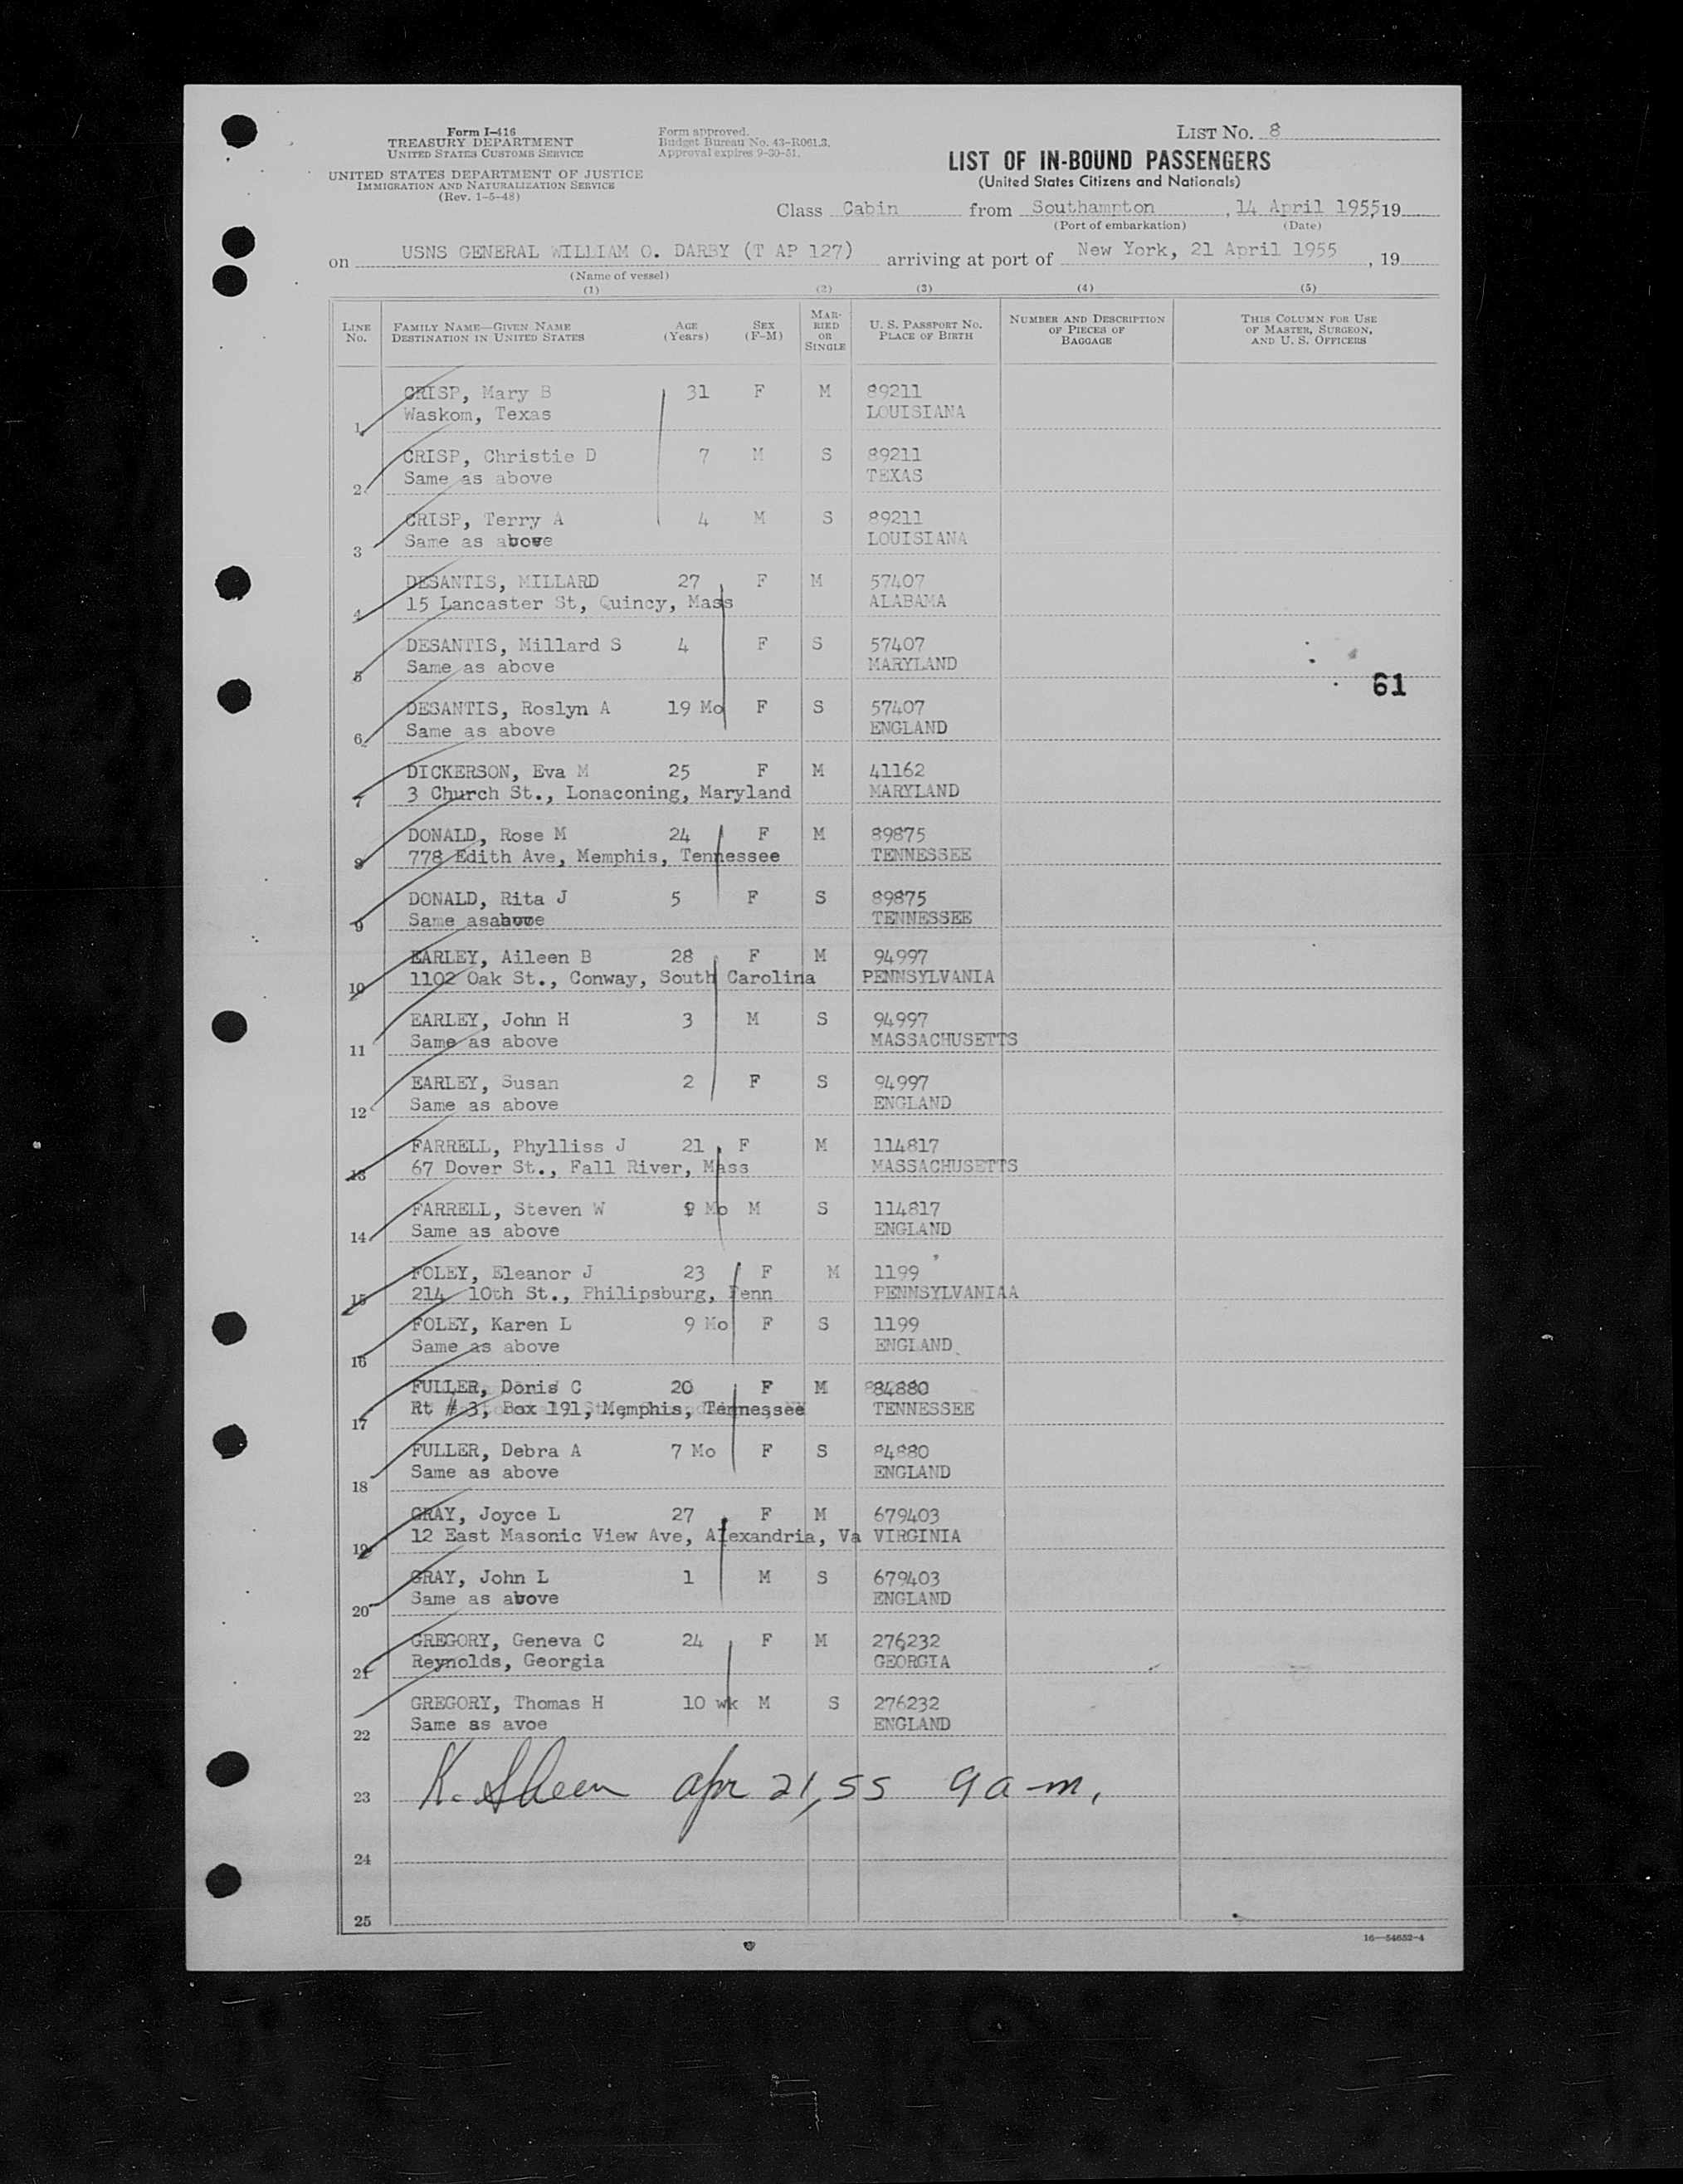 Form I-416
TREASURY DEPARTMENT
UNITED STATES CUSTOMS SERVICE
UNITED STATES DEPARTMENT OF JUSTICE
IMMIGRATION AND NATURALIZATION SERVICE
(Rev. 1-5-48)
Form approved.
Budget Bureau No. 43-R061.3.
Approval expires 9-30-51.
LIST No. 8
LIST OF IN-BOUND PASSENGERS
(United States Citizens and Nationals)
Class Cabin from Southampton, 14 April 1955, 19
(Port of embarkation) (Date)
on USNS GENERAL WILLIAM O. DARBY (T AP 127) arriving at port of New York, 21 April 1955, 19
(Name of vessel)
(1) (2) (3) (4) (5)
LINE No. FAMILY NAME—GIVEN NAME DESTINATION IN UNITED STATES AGE (Years) SEX (F-M) MARRIED OR SINGLE U. S. PASSPORT No. PLACE OF BIRTH NUMBER AND DESCRIPTION OF PIECES OF BAGGAGE THIS COLUMN FOR USE OF MASTER, SURGEON, AND U. S. OFFICERS
CRISP, Mary B 31 F M 89211
1 Waskom, Texas LOUISIANA
CRISP, Christie D 7 M S 89211
2 Same as above TEXAS
CRISP, Terry A 4 M S 89211
3 Same as above LOUISIANA
DESANTIS, MILLARD 27 F M 57407
4 15 Lancaster St, Quincy, Mass ALABAMA
DESANTIS, Millard S 4 F S 57407
5 Same as above MARYLAND
61
DESANTIS, Roslyn A 19 Mo F S 57407
6 Same as above ENGLAND
DICKERSON, Eva M 25 F M 41162
7 3 Church St., Lonaconing, Maryland MARYLAND
DONALD, Rose M 24 F M 89875
8 778 Edith Ave, Memphis, Tennessee TENNESSEE
DONALD, Rita J 5 F S 89875
9 Same asabove TENNESSEE
EARLEY, Aileen B 28 F M 94997
10 1102 Oak St., Conway, South Carolina PENNSYLVANIA
EARLEY, John H 3 M S 94997
11 Same as above MASSACHUSETTS
EARLEY, Susan 2 F S 94997
12 Same as above ENGLAND
FARRELL, Phylliss J 21 F M 114817
13 67 Dover St., Fall River, Mass MASSACHUSETTS
FARRELL, Steven W 9 Mo M S 114817
14 Same as above ENGLAND
FOLEY, Eleanor J 23 F M 1199
15 214 10th St., Philipsburg, Penn PENNSYLVANIAA
FOLEY, Karen L 9 Mo F S 1199
16 Same as above ENGLAND
FULLER, Doris C 20 F M 84880
17 Rt # 3, Box 191, Memphis, Tennessee TENNESSEE
FULLER, Debra A 7 Mo F S 84880
18 Same as above ENGLAND
GRAY, Joyce L 27 F M 679403
19 12 East Masonic View Ave, Alexandria, Va VIRGINIA
GRAY, John L 1 M S 679403
20 Same as above ENGLAND
GREGORY, Geneva C 24 F M 276232
21 Reynolds, Georgia GEORGIA
GREGORY, Thomas H 10 wk M S 276232
22 Same as avoe ENGLAND
23 K. Sheen apr 21, 55 9 a-m.
24
25
16—54652-4